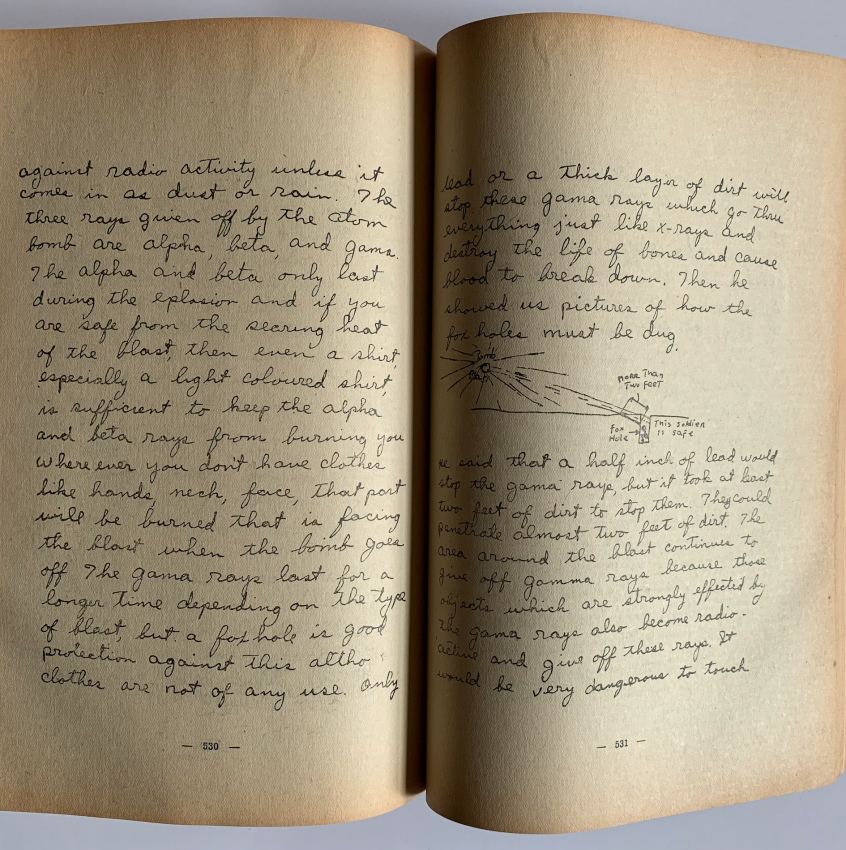 against radio activity unless it
comes in as dust or rain. The
three rays given off by the atom
bomb are alpha, beta, and gama.
The alpha and beta only last
during the eplosion and if you
are safe from the searing heat
of the blast, then even a shirt,
especially a light coloured shirt,
is sufficient to keep the alpha
and beta rays from burning you
where ever you don't have clothes
like hands, neck, face, that part
will be burned that is facing
the blast when the bomb goes
off The gama rays last for a
longer time depending on the type
of blast, but a fox hole is good
protection against this altho
clothes are not of any use. Only
— 530 —
lead or a thick layer of dirt will
stop these gama rays which go thru
everything just like x-rays and
destroy the life of bones and cause
blood to break down. Then he
showed us pictures of how the
fox holes must be dug.
MORE THAN
TWO FEET
FOX
HOLE
THIS SOLDIER
IS SAFE
he said that a half inch of lead would
stop the gama rays, but it took at least
two feet of dirt to stop them. They could
penetrate almost two feet of dirt. The
area around the blast continues to
give off gamma rays because those
objects which are strongly effected by
the gama rays also become radio-
active and give off these rays. It
would be very dangerous to touch
— 531 —